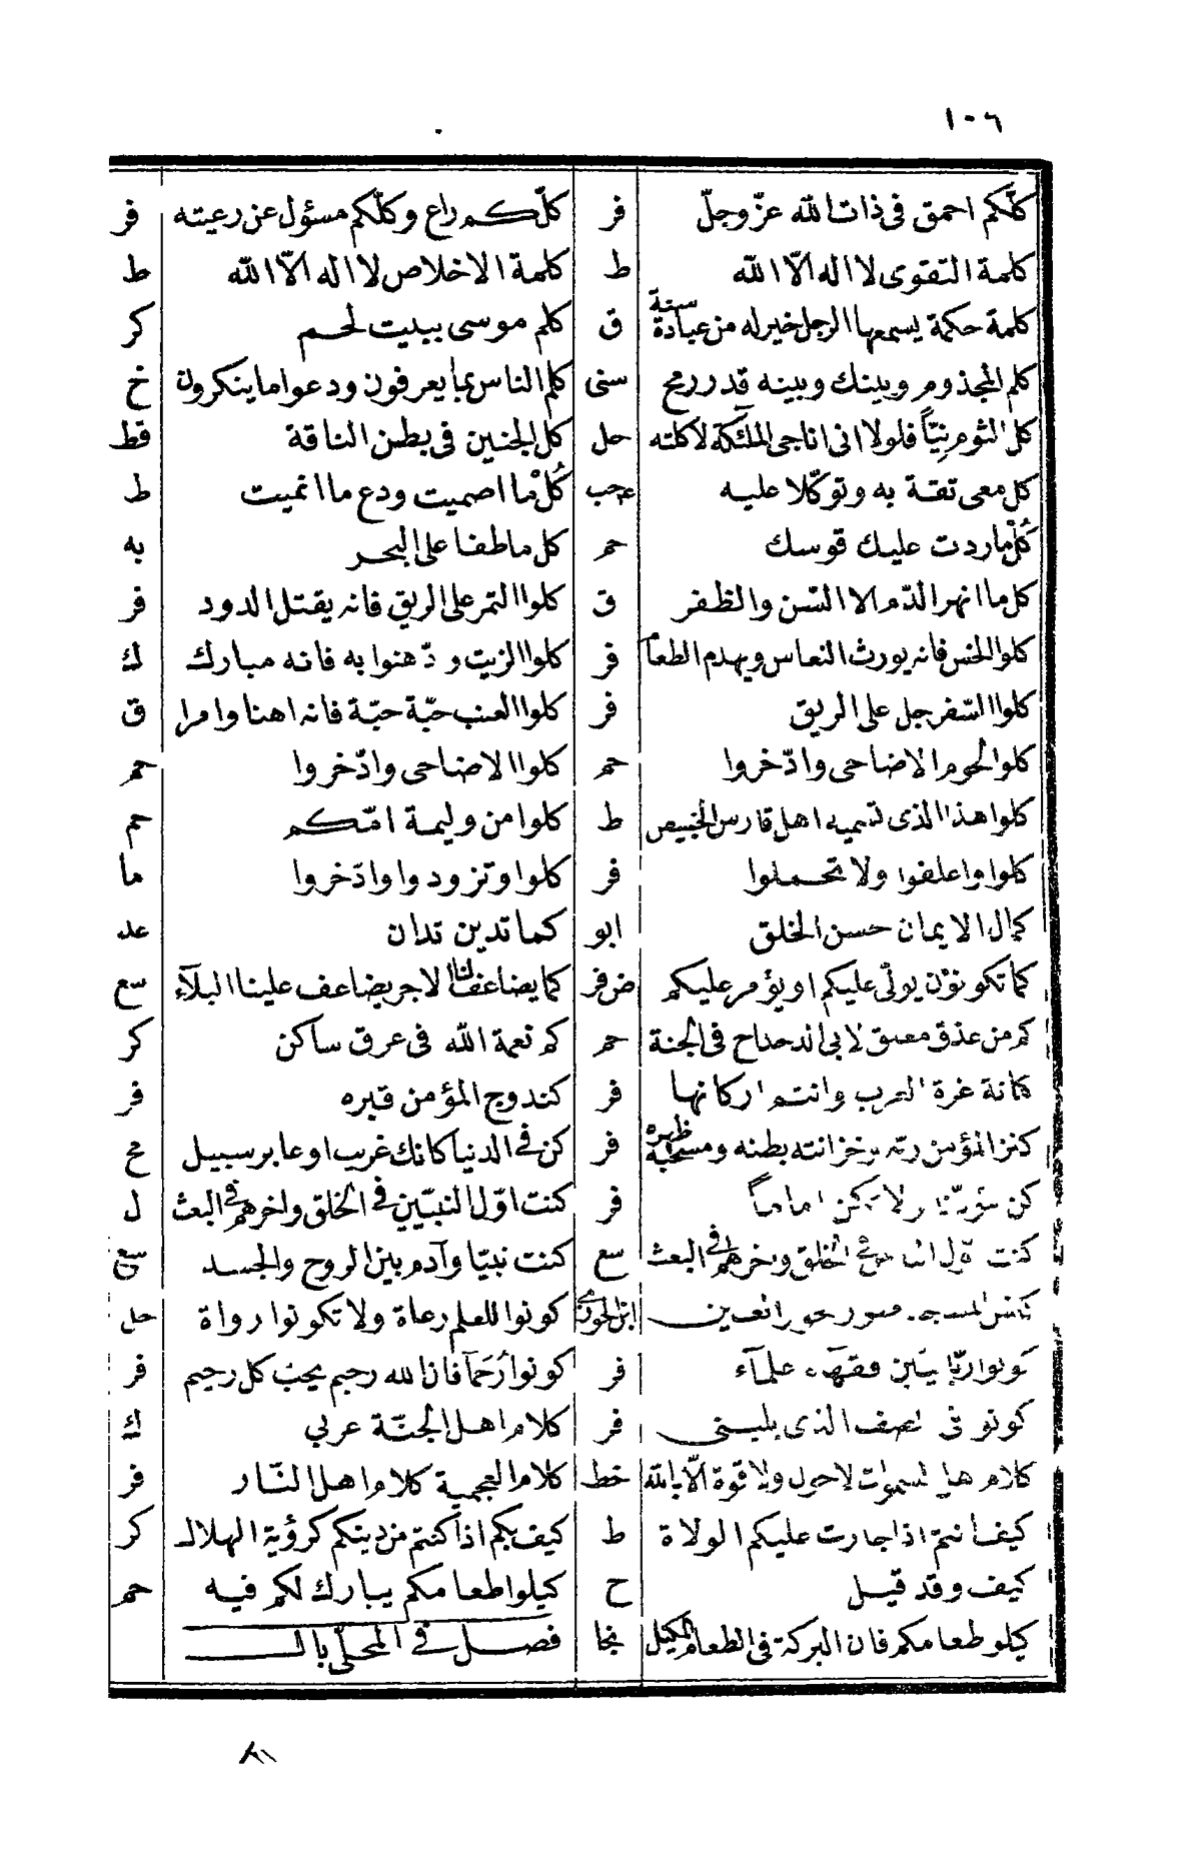 ١٠٦
كلّكم احمق فى ذات الله عزّ وجلّ فر كلّكم راع وكلّكم مسؤل عن رعيته فر
كلمة التقوى لا اله الّا الله ط كلمة الاخلاص لا اله الّا الله ط
كلمة حكمة يسمعها الرجل خير له من عبادة سنة ق كلم موسى ببيت لحم كر
كلم المجذوم وبينك وبينه قدر رمح سنى كلم الناس بما يعرفون ودعوا ما ينكرون خ
كل الثوم نيّاً فلولا انى اناجى الملئكة لاكلته حل كل الجنين فى بطن الناقة قط
كل معى ثقة به وتوكّلا عليه حب كُلْ ما اصميت ودع ما انميت ط
كُلْ ما ردت عليك قوسك حم كل ما طفا على البحر به
كل ما انهر الدّم الا السّن والظفر ق كلوا التمر على الريق فانه يقتل الدود فر
كلوا الخس فانه يورث النعاس ويهدم الطعام فر كلوا الزيت و دّهنوا به فانه مبارك ك
كلوا السّفرجل على الريق فر كلوا العنب حبّة حبّة فانه اهنا وامرا ق
كلوا لحوم الاضاحى وادّخروا حم كلوا الاضاحى وادّخروا حم
كلوا هذا الذى تسميه اهل فارس الخبيص ط كلوا من وليمة امّكم حم
كلوا واعلفوا ولا تحملوا فر كلوا وتزودوا وادّخروا ما
كمال الايمان حسن الخلق ابو كما تدين تدان عد
كما تكونوْن يولّى عليكم او يؤمر عليكم ض فر كما يضاعف لنا الاجر يضاعف علينا البلآء سع
كم من عذق معلق لابى الدحداح فى الجنة حم كم نعمة الله فى عرق ساكن كر
كنانة غرة العرب وانتم اركانها فر كندوج المؤمن قبره فر
كنز المؤمن ربه وخزانته بطنه ومسحبة ظهره فر كن فى الدنيا كانك غريب او عابر سبيل خ
كن مؤذّنا ولا تكن اماماً فر كنت اوّل النبيّين فى الخلق واخرهم فى البعث ل
كنت فى الخلق فى البعث سع كنت نبيّا وآدم بين الروح والجسد سع
كنس المسجد مهور حور العين ابن الجوزى كونوا للعلم رعاة ولا تكونوا رواة حل
كونوا ربّانيّين فقهآء علمآء فر كونوا رُحَمآ فان الله رحيم يحب كل رحيم فر
كونو فى الصف الذى يلينى فر كلام اهل الجنّة عربي ك
كلام اهل السموات لا حول ولا قوة الّا بالله خط كلام العجمية كلام اهل النّار فر
كيف انتم اذا جارت عليكم الولاة ط كيف بكم اذا كنتم من دينكم كرؤية الهلال كر
كيف وقد قيل خ كيلوا طعامكم يبارك لكم فيه حم
كيلو طعامكم فان البركة فى الطعام المكيل نجا فصل فى المحلّى بال